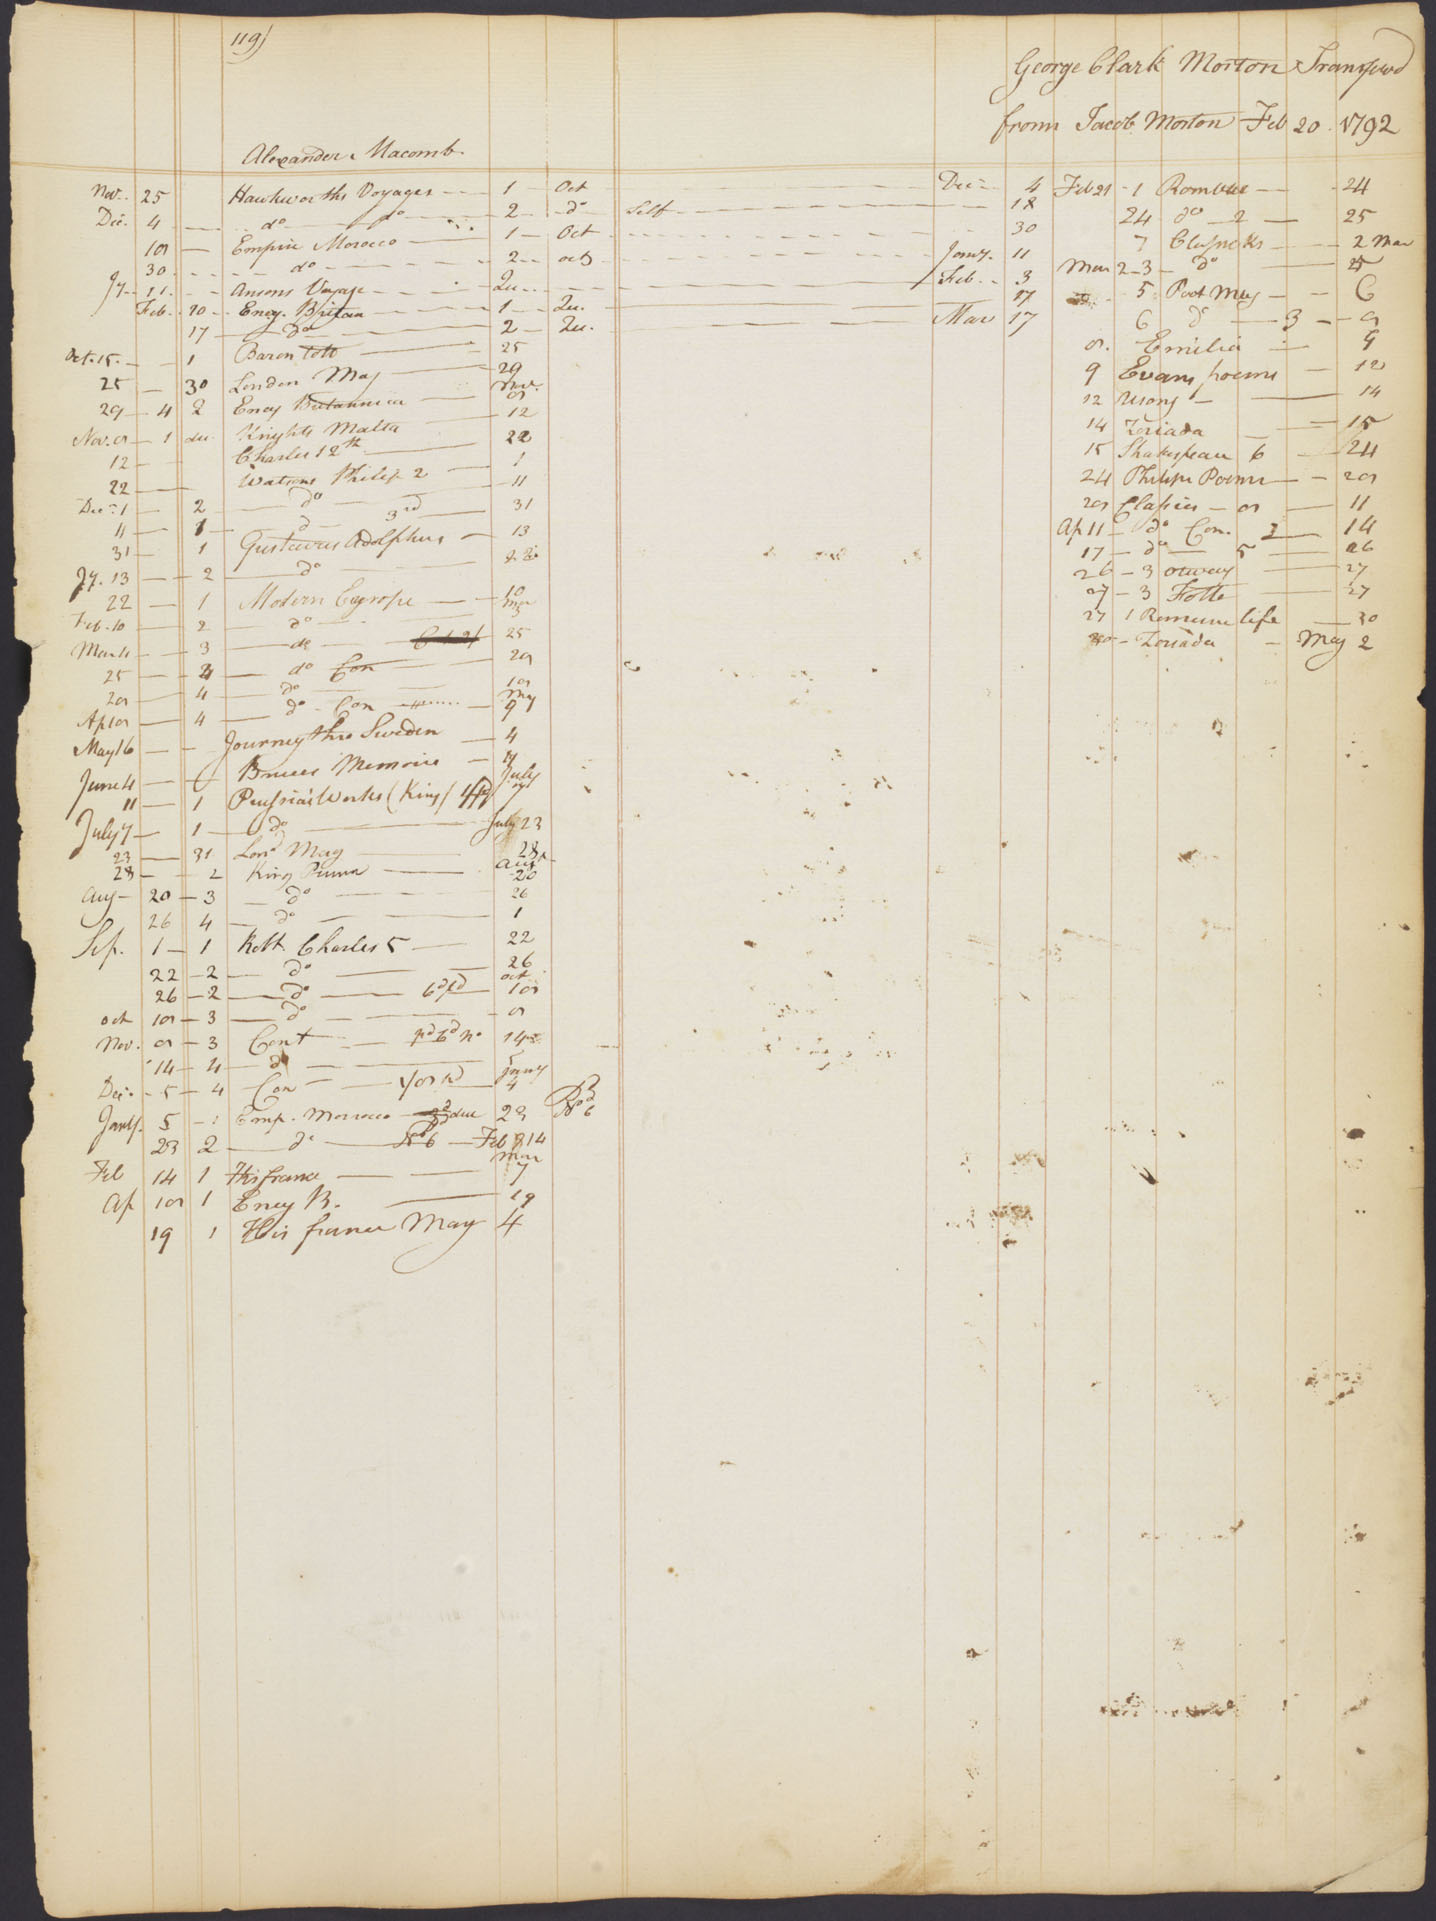 119)
Alexander Macomb
Nov. 25 Hawkworths Voyages 1 Oct Dec 4
Dec. 4 do do 2 do Self 18
10 Empire Morocco 1 Oct 30
30 do 2 octo Jany. 11
Jy 11 Ansons Voyage Qu Feb 3
Feb. 20 Ency. Britan 1 Qu. 17
17 do 2 Qu. Mar 17
Oct. 15 1 Baron Tott 25
25 30 London Mag 29
29 4 2 Ency Britannica Nov. 8
Nov. 8 1 du Knights Malta 12
12 Charles 12th 22
22 Watsons Philip 2 1
Dec. 1 2 do 11
11 1 do 3rd 31
31 1 Gustavus Adolphus 13
Jy. 13 2 do 22
22 1 Modern Europe 10
Feb. 10 2 do Mar
Mar 4 3 do 25
25 4 do Con 28
28 4 do 18
Ap 18 4 do Con May 9
May 16 Journey thro Sweden 4
June 4 Bruces Memoirs 11
11 1 Prussia's Works (King) July 7
July 7 1 do July 23
23 31 Lond Mag 28
28 2 King Prussia Augt 20
Aug 20 3 do 26
26 4 do 1
Sep. 1 1 Robt. Charles 5 22
22 2 do 26
26 2 do 6d pd Oct 18
Oct 18 3 do 8
Nov. 8 3 Cont pd 6d No 14
14 4 do 5
Dec. 5 4 Con Jany 4
Jany. 5 1 Emp. Morrocco due 23 Pd No 6
23 2 do No 6 Feb 14
Feb 14 1 His france Mar 7
Ap 18 1 Ency B. 19
19 1 His france May 4
George Clark Morton Transferd
from Jacob Morton Feb 20. 1792
Feb 21 1 24
24 do 2 25
7 Classicks 2 Mar
Mar 2 3 do 5
5 Poet Mag 6
6 do 3 8
8. Emilia 9
9 Evans poems 12
12 Usong 14
14 Zoriada 15
15 Shakespeare 6 24
24 Philips Poems 28
28 Classics 8 11
Ap 11 do Con. 2 14
17 do 5 26
26 3 Otway 27
27 3 Foote 27
27 1 Remune life 30
30 Zoriada May 2